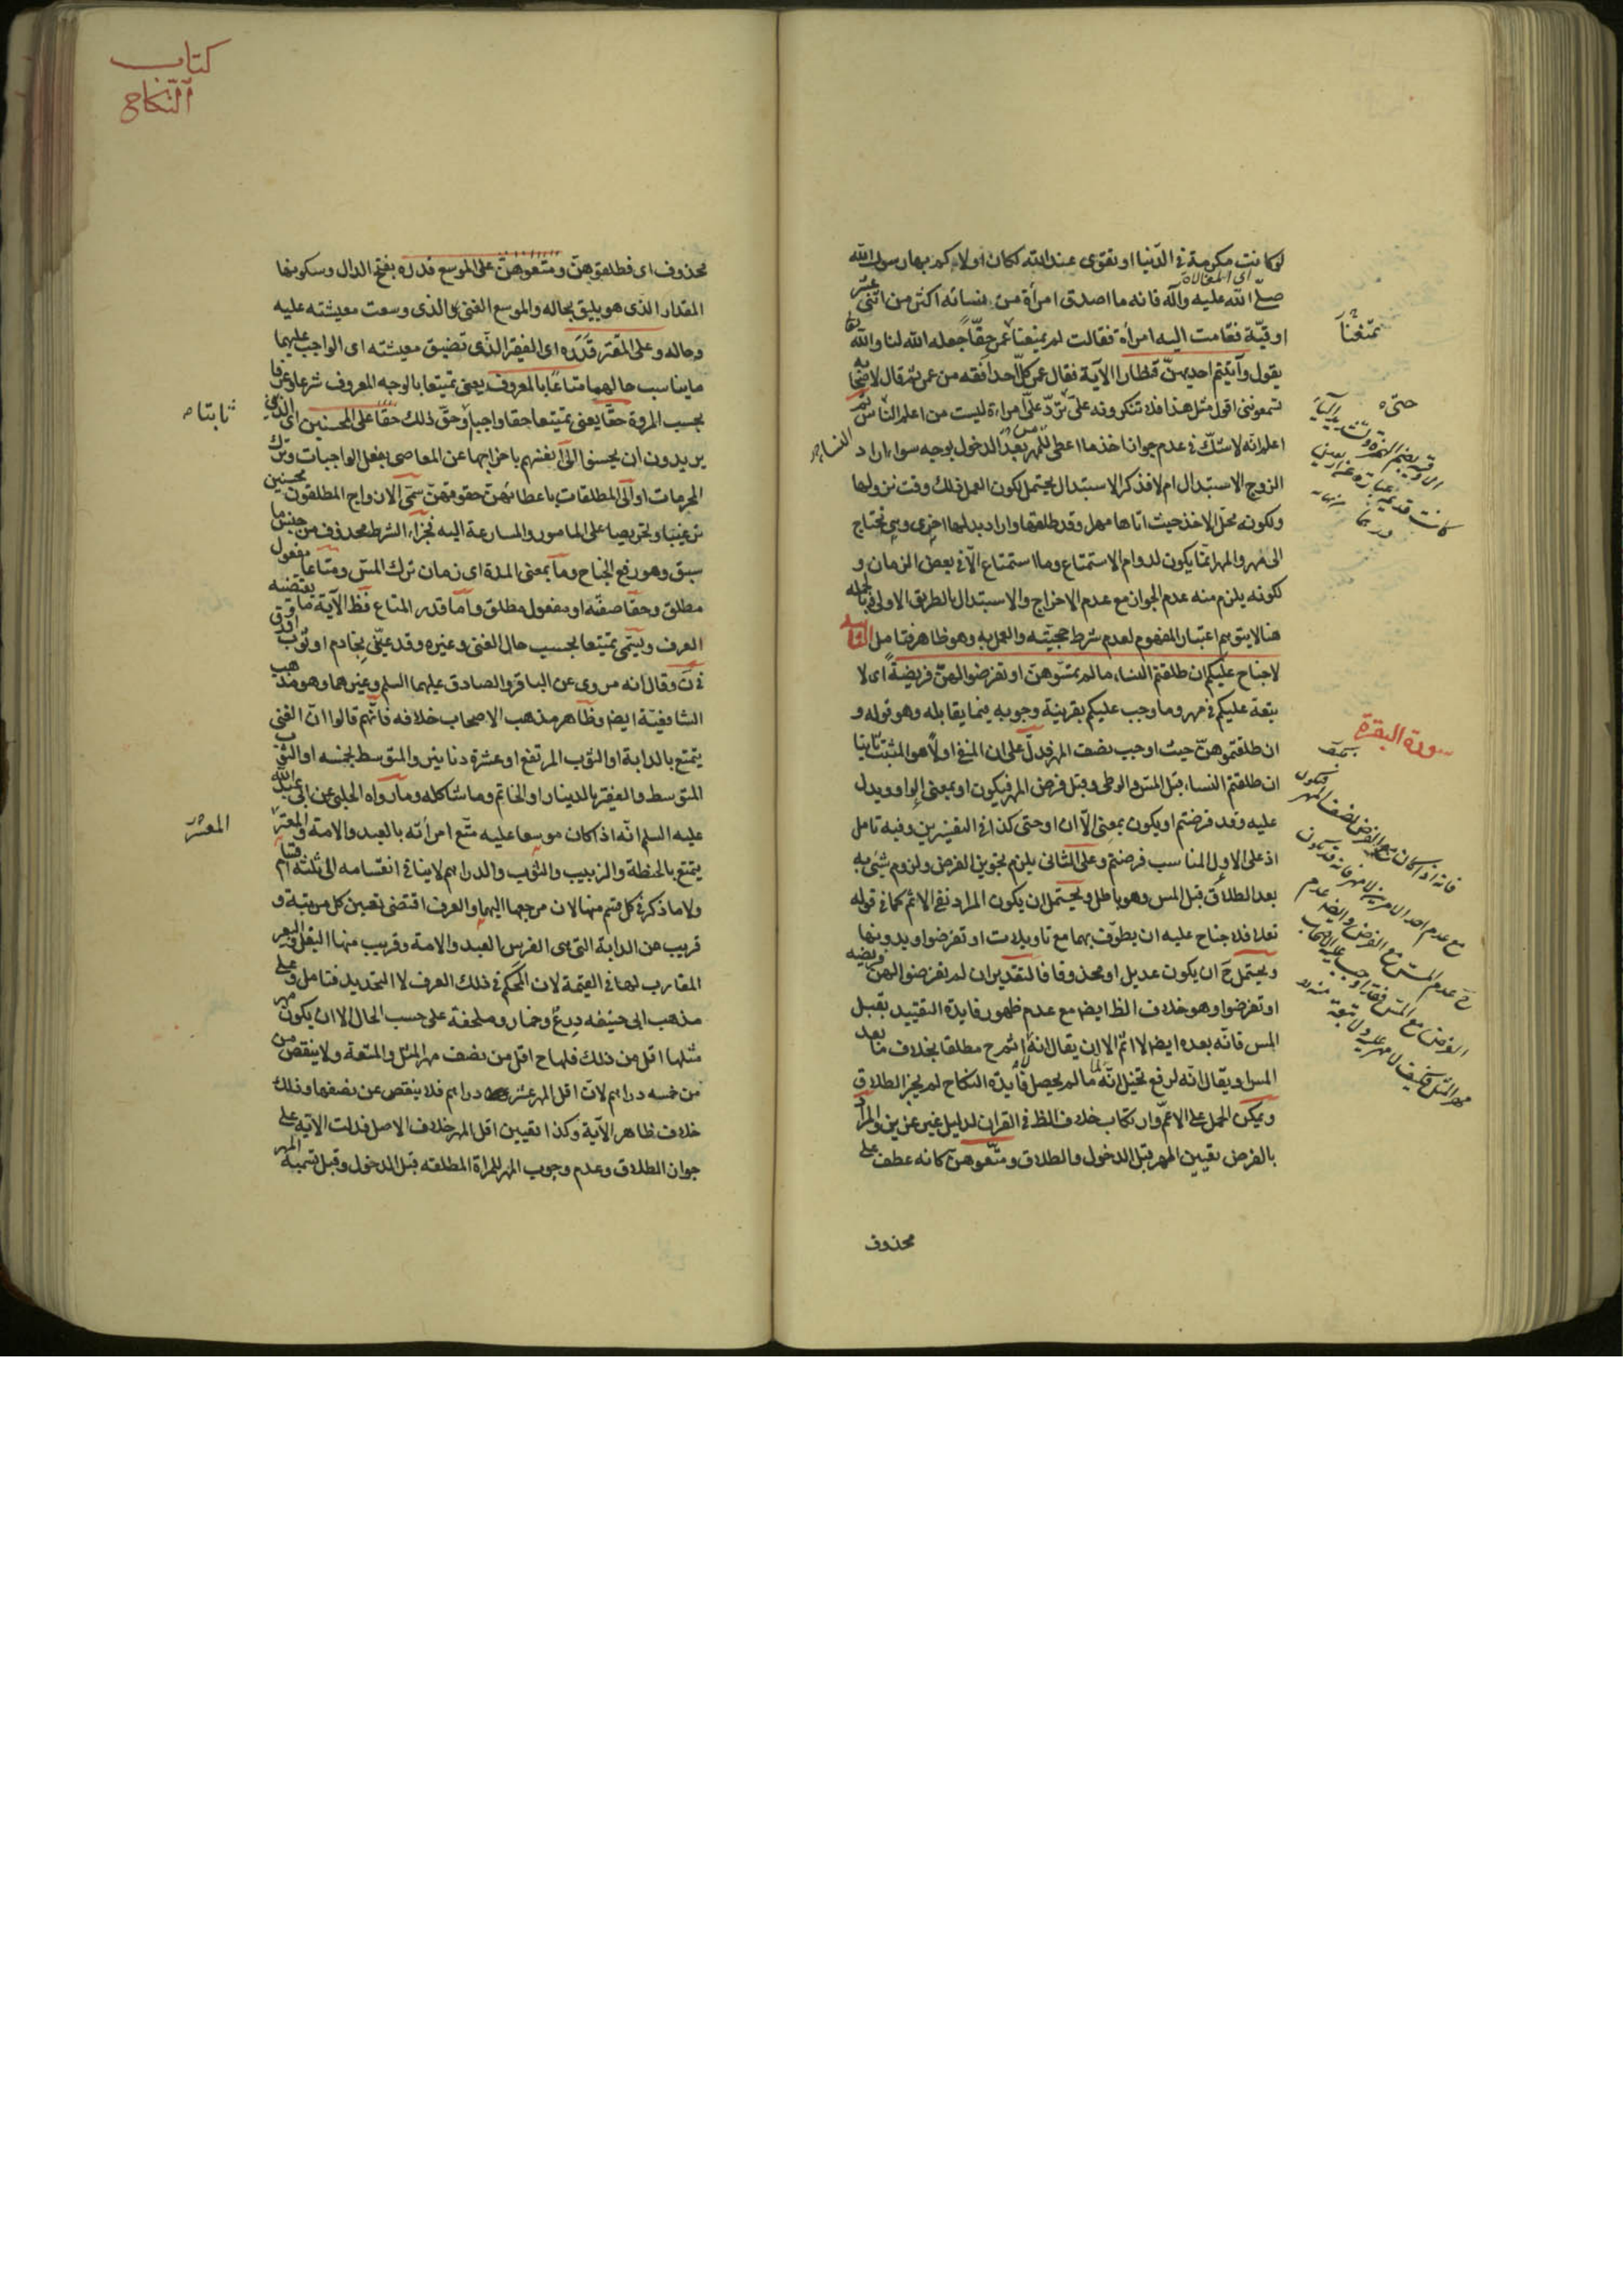 لو كانت مكرمة فى الدنيا او تقوى عند الله لكان اولاكم بها رسول الله
اى المغالاة
صلى الله عليه وآله فانه ما اصدق امرأة من نسائه اكثر من اثنى عشر
اوقية فقامت اليه امرأة فقالت لم تمنعنا حقا جعله الله لنا والله
يقول وآتيتم احديهن قنطارا الآية فقال عمر كل احد افقه من عمر ثم قال لاصحابه
تسمعوننى اقول مثل هذا فلا تنكرونه على حتى ترد على امراة ليست من اعلم النساء ثم
اعلم انه لا شك فى عدم جواز اخذ ما اعطى المهر بعد الدخول بوجه سواء اراد
الزوج الاستبدال ام لا فذكر الاستبدال يحتمل لكون العمل ذلك وقت نزولها
ولكونه محل الاخذ حيث اتاها مهل وقد طلقها واراد بدلها اخرى وهى تحتاج
الى مهر والمهر انما يكون لدوام الاستمتاع وما استمتاع الا فى بعض الزمان و
لكونه يلزم منه عدم الجواز مع عدم الاخراج والاستبدال بالطريق الاولى وبالجملة
هنا لا يتوهم اعتبار المفهوم لعدم شرط حجيته والعمل به وهو ظاهر فتامل
لا جناح عليكم ان طلقتم النساء ما لم تمسوهن او تفرضوا لهن فريضة اى لا
تبعة عليكم فى مهر وما وجب عليكم بقرينة وجوبه فيما يقابله وهو قوله و
ان طلقتموهن حيث اوجب نصف المهر فدل على ان المنفى اولا هو المثبت ثانيا
ان طلقتم النساء قبل المس والوطى وقبل فرض المهر فيكون او بمعنى الواو ويدل
عليه وقد فرضتم او يكون بمعنى الا ان او حتى كذا فى التفيسيرين وفيه تامل
اذ على الاول المناسب فرضتم وعلى الثانى يلزم تجويز الفرض ولزوم شىء به
بعد الطلاق قبل المس وهو باطل ويحتمل ان يكون المراد نفى الاثم كما فى قوله
تعالى فلا جناح عليه ان يطوف بهما مع تاويلات او تفرضوا وبدونها
ويحتمل ح ان يكون عديل او محذوفا فالتقدير ان لم تفرضوا لهن فريضه
او تفرضوا وهو خلاف الظ ايضا مع عدم ظهور فايدة التقييد بقبل
المس فانه بعده ايضا لا اثم الا ان يقال انه مطلقا بخلاف ما بعد
المس او يقال انه لرفع تخيل انه ما لم يحصل فايدة النكاح لم يجز الطلاق
ويمكن الحمل على الاعم وارتكاب خلاف الظ فى القران لدليل غير عزيز والمراد
بالفرض تعيين المهر قبل الدخول والطلاق ومتعوهن كانه عطف على
محذوف
تمنعنا
حتى
سورة البقرة
كتاب
النكاح
محذوف اى فطلقوهن ومتعوهن على الموسع قدره بفتح الدال وسكونها
المقدار الذى هو يليق بحاله والموسع الغنى والذى وسعت معيشته عليه
وحاله وعلى المقتر قدره اى الفقير الذى تضيق معيشته اى الواجب عليهما
ما يناسب حالهما متاعا بالمعروف يعنى تمتيعا بالوجه المعروف شرعا وعرفا
بحسب المروة حقا يعنى تمتيعا حقا واجبا وحق ذلك حقا على المحسنين اى الذين
يريدون ان يحسنوا الى انفسهم باخراجها عن المعاصى بفعل الواجبات وترك
المحرمات او الى المطلقات باعطائهن حقوقهن سمى الازواج المطلقون محسنين
ترغيبا وتحريصا على المامور والمسارعة اليه فجزاء الشرط محذوف من جنس ما
سبق وهو رفع الجناح وما بمعنى المدة اى زمان ترك المس ومتاعا مفعول
مطلق وحقا صفته او مفعول مطلق واما قدر المتاع فظ الآية ما يقتضيه
العرف ويسمى تمتيعا بحسب حال الغنى وغيره وقد عين بخادم او ثوب
فى ن وقال انه مروى عن الباقر والصادق عليهما السلم وغيرهما وهو مذهب
الشافعية ايضا وظاهر مذهب الاصحاب خلافه فانهم قالوا ان الغنى
يتمتع بالدابة او الثوب المرتفع او عشرة دنانير والمتوسط بخمسه او الثوب
المتوسط والفقير بالدينار او الخاتم وما شاكله وما رواه الحلبى عن ابى عبد الله
عليه السلم انه اذا كان موسعا عليه متع امرأته بالعبد والامة والمقتر
يمتع بالحنطة والزبيب والثوب والدراهم لا ينافى انقسامه الى ثلثة اقسام
ولا ما ذكر فى كل قسم منها لان مرجعها اليهما والعرف اقتضى تعيين كل مرتبة و
قريب من الدابة التى هى الفرس العبد والامة وقريب منها البغل والبعير
المقارب لها فى القيمة لان الحكم فى ذلك العرف لا التحديد فتامل وعلى
مذهب ابى حنيفه درع وخمار وملحفة على حسب الحال الا ان يكون مهر
مثلها اقل من ذلك فلها ح اقل من نصف مهر المثل والمتعة ولا ينقص من
من خمسه دراهم لان اقل المهر عشر دراهم فلا ينقص عن نصفها وذلك
خلاف ظاهر الآية وكذا تعيين اقل المهر خلاف الاصل فدلت الآية على
جواز الطلاق وعدم وجوب المهر للمراة المطلقه قبل الدخول وقبل تسمية المهر
ثابتا